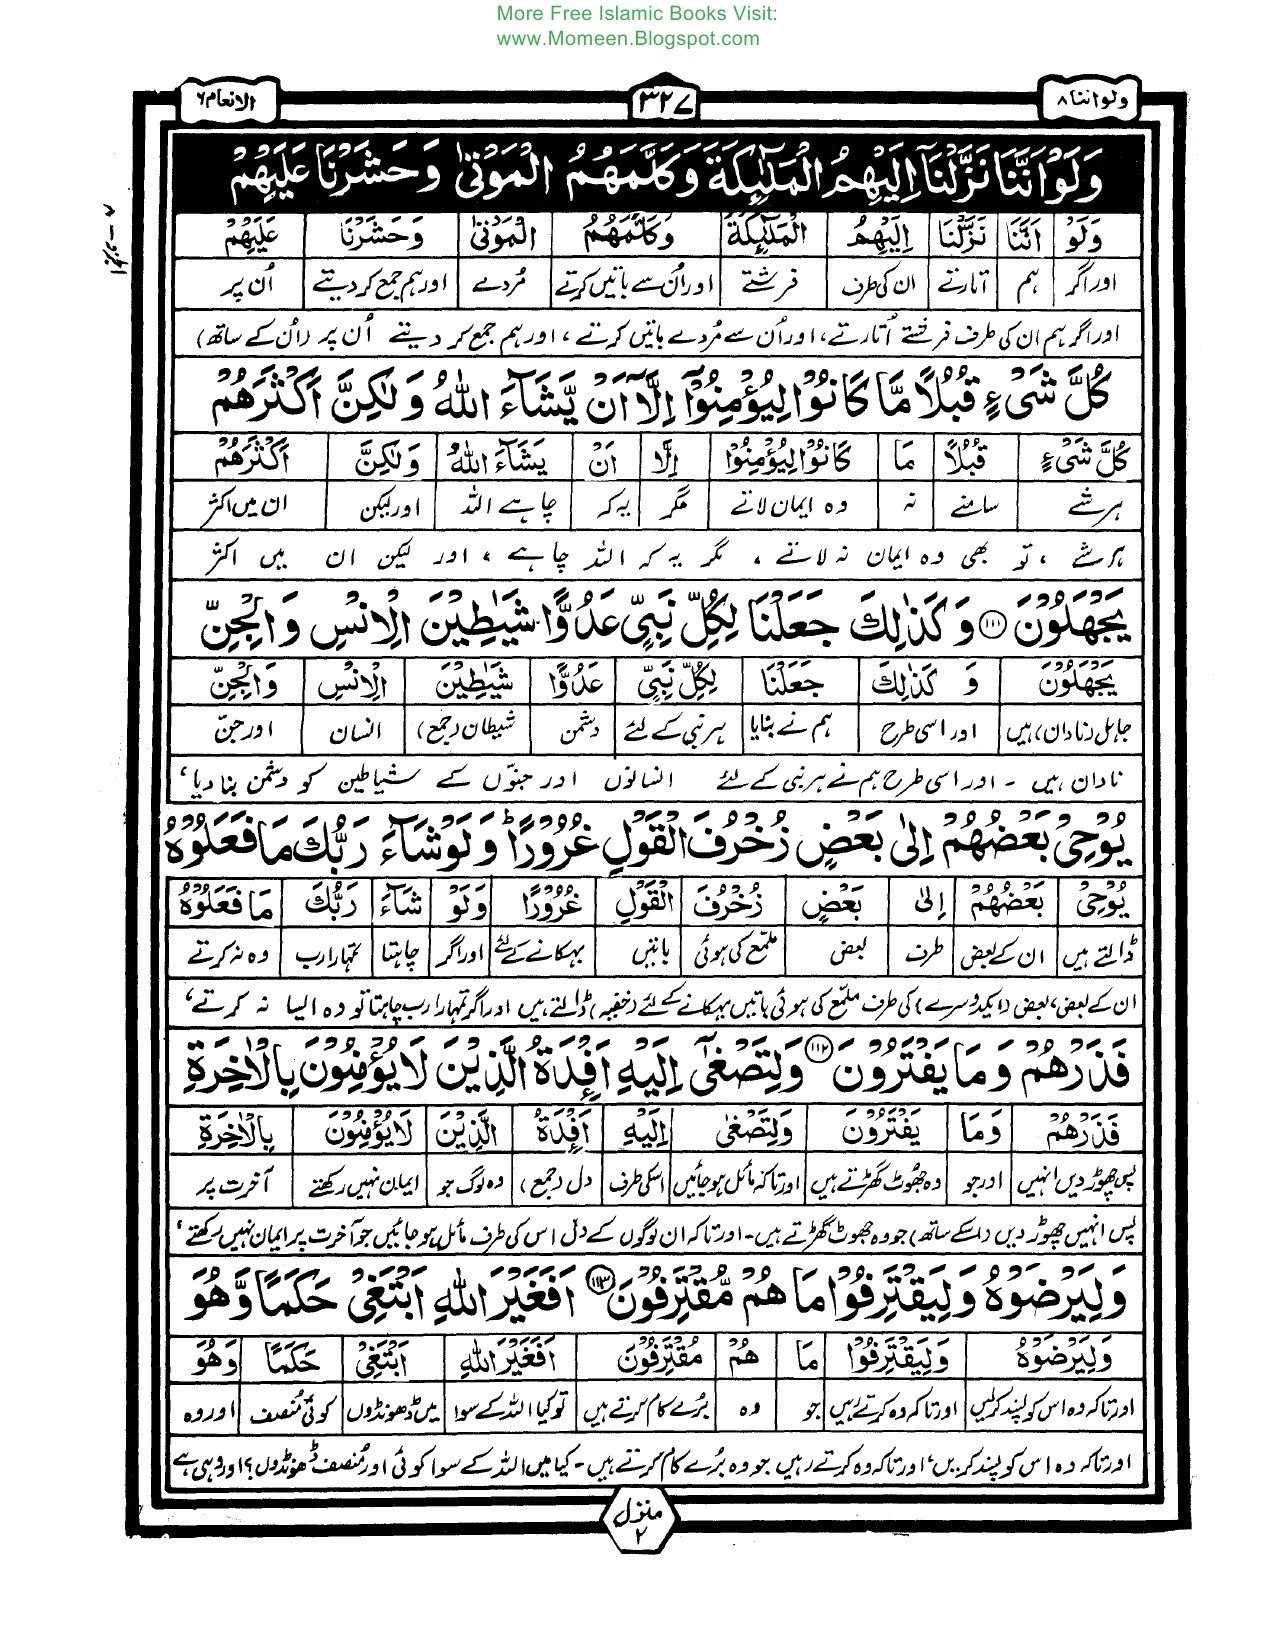 More Free Islamic Books Visit:
www.Momeen.Blogspot.com
ولواننا ۸
۳۲۷
الانعام ۶
وَلَوْ اَنَّنَا نَزَّلْنَآ اِلَيْهِمُ الْمَلٰٓئِكَةَ وَكَلَّمَهُمُ الْمَوْتٰى وَحَشَرْنَا عَلَيْهِمْ
وَلَوْ اَنَّنَا نَزَّلْنَا اِلَيْهِمُ الْمَلٰٓئِكَةَ وَكَلَّمَهُمُ الْمَوْتٰى وَحَشَرْنَا عَلَيْهِمْ
اور اگر ہم اتارتے ان کی طرف فرشتے اور اُن سے باتیں کرتے مُردے اور ہم جمع کردیتے اُن پر
اور اگر ہم ان کی طرف فرشتے اُتارتے، اور اُن سے مُردے باتیں کرتے، اور ہم جمع کر دیتے اُن پر (اُن کے ساتھ)
كُلَّ شَىْءٍ قُبُلًا مَّا كَانُوْا لِيُؤْمِنُوْٓا اِلَّآ اَنْ يَّشَآءَ اللّٰهُ وَلٰكِنَّ اَكْثَرَهُمْ
كُلَّ شَىْءٍ قُبُلًا مَا كَانُوْا لِيُؤْمِنُوْا اِلَّا اَنْ يَشَآءَ اللّٰهُ وَلٰكِنَّ اَكْثَرَهُمْ
ہر شے سامنے نہ وہ ایمان لاتے مگر یہ کہ چاہے اللہ اور لیکن ان میں اکثر
ہر شے، تو بھی وہ ایمان نہ لاتے، مگر یہ کہ اللہ چاہے، اور لیکن ان میں اکثر
يَجْهَلُوْنَ ۱۱۱ وَكَذٰلِكَ جَعَلْنَا لِكُلِّ نَبِىٍّ عَدُوًّا شَيٰطِيْنَ الْاِنْسِ وَالْجِنِّ
يَجْهَلُوْنَ وَ كَذٰلِكَ جَعَلْنَا لِكُلِّ نَبِىٍّ عَدُوًّا شَيٰطِيْنَ الْاِنْسِ وَالْجِنِّ
جاہل (نادان) ہیں اور اسی طرح ہم نے بنایا ہر نبی کے لئے دشمن شیطان (جمع) انسان اور جن
نادان ہیں ۔ اور اسی طرح ہم نے ہر نبی کے لئے انسانوں اور جنوّں کے شیاطین کو دشمن بنا دیا،
يُوْحِىْ بَعْضُهُمْ اِلٰى بَعْضٍ زُخْرُفَ الْقَوْلِ غُرُوْرًا ط وَلَوْ شَآءَ رَبُّكَ مَا فَعَلُوْهُ
يُوْحِىْ بَعْضُهُمْ اِلٰى بَعْضٍ زُخْرُفَ الْقَوْلِ غُرُوْرًا وَلَوْ شَآءَ رَبُّكَ مَا فَعَلُوْهُ
ڈالتے ہیں ان کے بعض طرف بعض ملمع کی ہوئی باتیں بہکانے کے لئے اور اگر چاہتا تمہارا رب وہ نہ کرتے
ان کے بعض، بعض (ایکدوسرے) کی طرف ملمع کی ہوئی باتیں بہکانے کے لئے (خفیہ) ڈالتے ہیں اور اگر تمہارا رب چاہتا تو وہ ایسا نہ کرتے،
فَذَرْهُمْ وَمَا يَفْتَرُوْنَ ۱۱۲ وَلِتَصْغٰٓى اِلَيْهِ اَفْـِٕدَةُ الَّذِيْنَ لَا يُؤْمِنُوْنَ بِالْاٰخِرَةِ
فَذَرْهُمْ وَمَا يَفْتَرُوْنَ وَلِتَصْغٰى اِلَيْهِ اَفْـِٕدَةُ الَّذِيْنَ لَا يُؤْمِنُوْنَ بِالْاٰخِرَةِ
پس چھوڑ دیں انہیں اور جو وہ جھوٹ گھڑتے ہیں اور تاکہ مائل ہو جائیں اسکی طرف دل (جمع) وہ لوگ جو ایمان نہیں رکھتے آخرت پر
پس انہیں چھوڑ دیں (اسکے ساتھ) جو وہ جھوٹ گھڑتے ہیں۔ اور تاکہ ان لوگوں کے دل اس کی طرف مائل ہو جائیں جو آخرت پر ایمان نہیں رکھتے،
وَلِيَرْضَوْهُ وَلِيَقْتَرِفُوْا مَا هُمْ مُّقْتَرِفُوْنَ ۱۱۳ اَفَغَيْرَ اللّٰهِ اَبْتَغِىْ حَكَمًا وَّهُوَ
وَلِيَرْضَوْهُ وَلِيَقْتَرِفُوْا مَا هُمْ مُقْتَرِفُوْنَ اَفَغَيْرَ اللّٰهِ اَبْتَغِىْ حَكَمًا وَهُوَ
اور تاکہ وہ اس کو پسند کرلیں اور تاکہ وہ کرتے رہیں جو وہ بُرے کام کرتے ہیں تو کیا اللہ کے سوا میں ڈھونڈوں کوئی مُنصف اور وہ
اور تاکہ وہ اس کو پسند کریں، اور تاکہ وہ کرتے رہیں جو وہ بُرے کام کرتے ہیں۔ کیا میں اللہ کے سوا کوئی اور مُنصف ڈھونڈوں؟ اور وہی ہے
منزل ۲